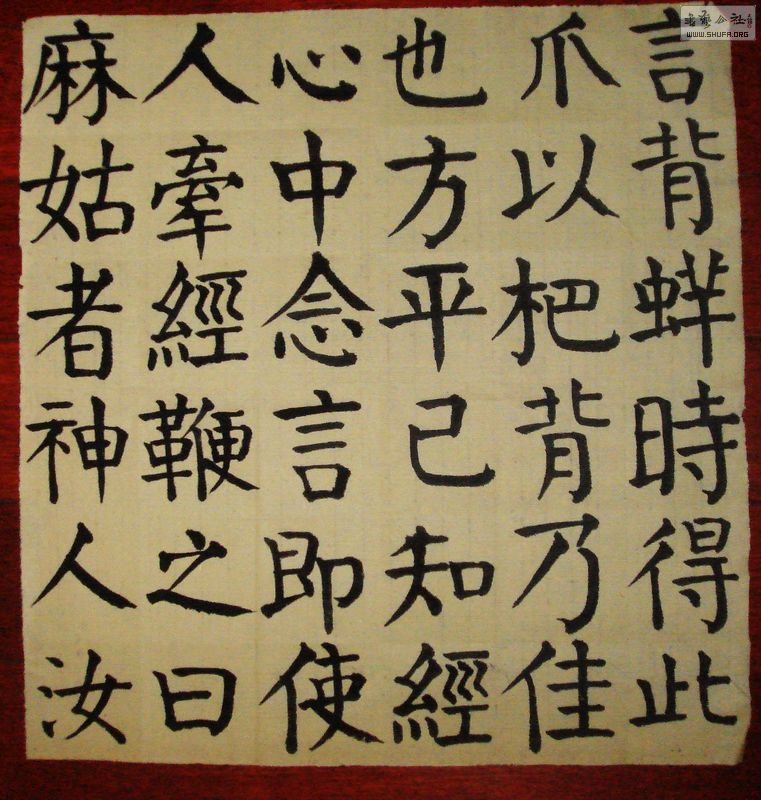 言背蛘時得此
爪以杷背乃佳
也方平己知經
心中念言即使
人牽經鞭之曰
麻姑者神人汝
WWW.SHUFA.ORG